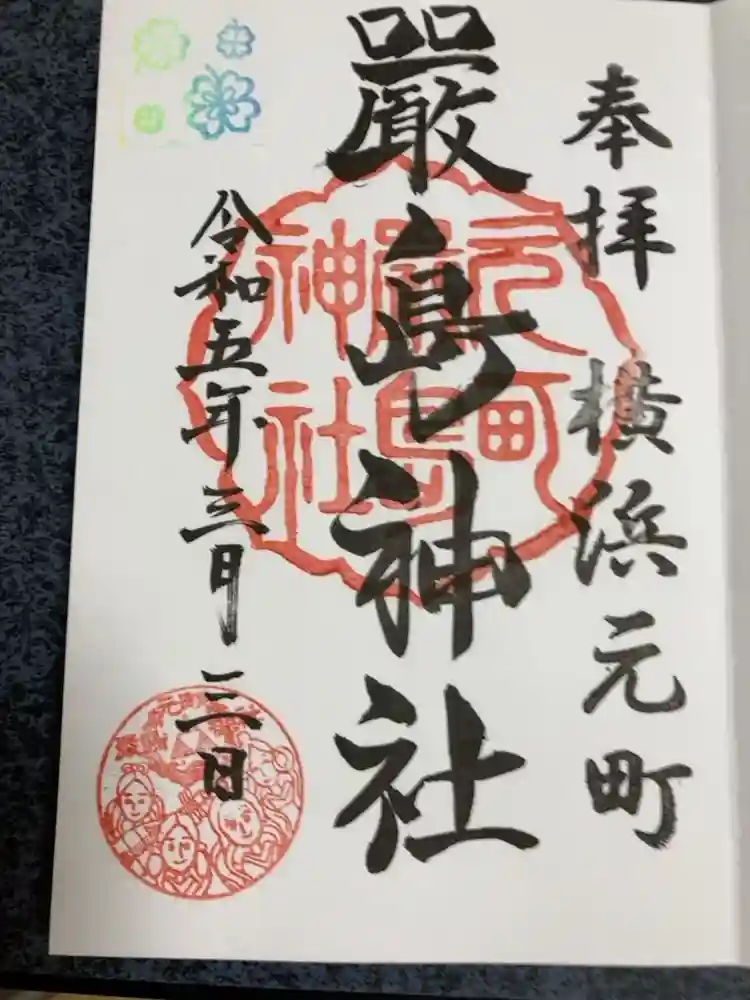 奉拝 横浜元町
嚴島神社
令和五年三月三日
元町
嚴島
神社